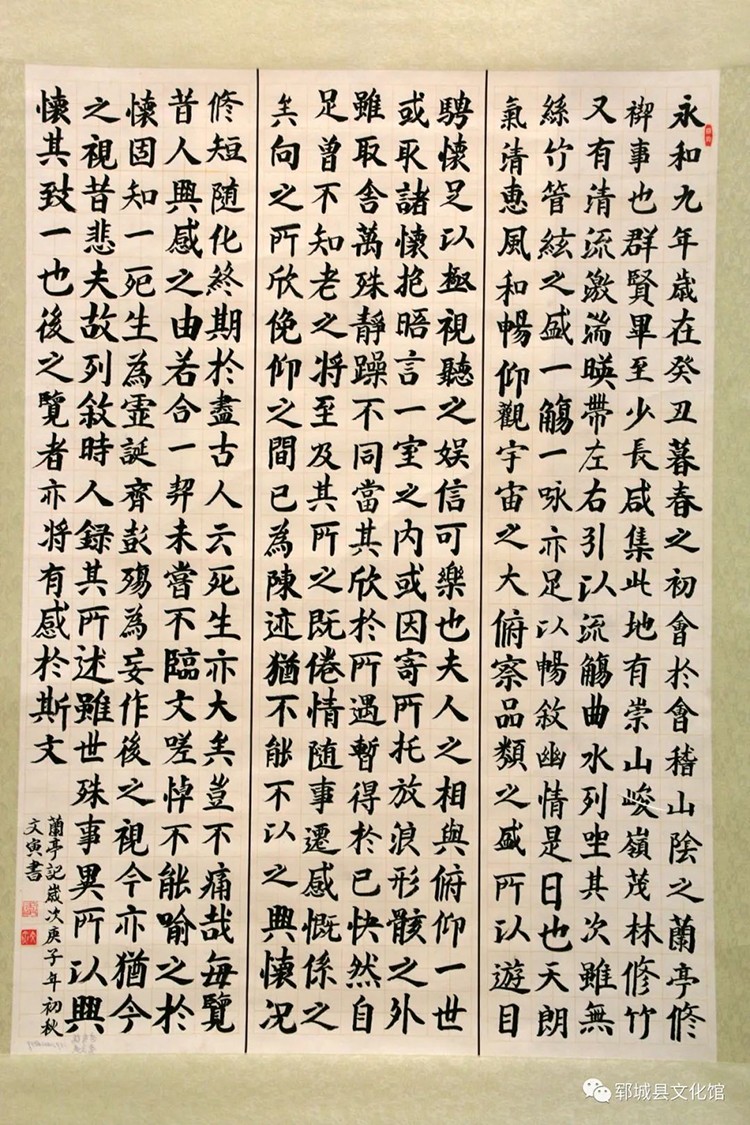 永和九年歲在癸丑暮春之初會於會稽山陰之蘭亭修
禊事也群賢畢至少長咸集此地有崇山峻嶺茂林修竹
又有清流激湍暎帶左右引以流觴曲水列坐其次雖無
絲竹管絃之盛一觴一咏亦足以暢敘幽情是日也天朗
氣清惠風和暢仰觀宇宙之大俯察品類之盛所以遊目
騁懷足以極視聽之娛信可樂也夫人之相與俯仰一世
或取諸懷抱晤言一室之內或因寄所托放浪形骸之外
雖取舍萬殊靜躁不同當其欣於所遇暫得於己快然自
足曾不知老之將至及其所之既倦情隨事遷感慨係之
矣向之所欣俛仰之間已為陳迹猶不能不以之興懷況
修短隨化終期於盡古人云死生亦大矣豈不痛哉每覽
昔人興感之由若合一契未嘗不臨文嗟悼不能喻之於
懷固知一死生為虛誕齊彭殤為妄作後之視今亦猶今
之視昔悲夫故列敘時人錄其所述雖世殊事異所以興
懷其致一也後之覽者亦將有感於斯文
蘭亭記歲次庚子年初秋
文寅書
郓城县文化馆